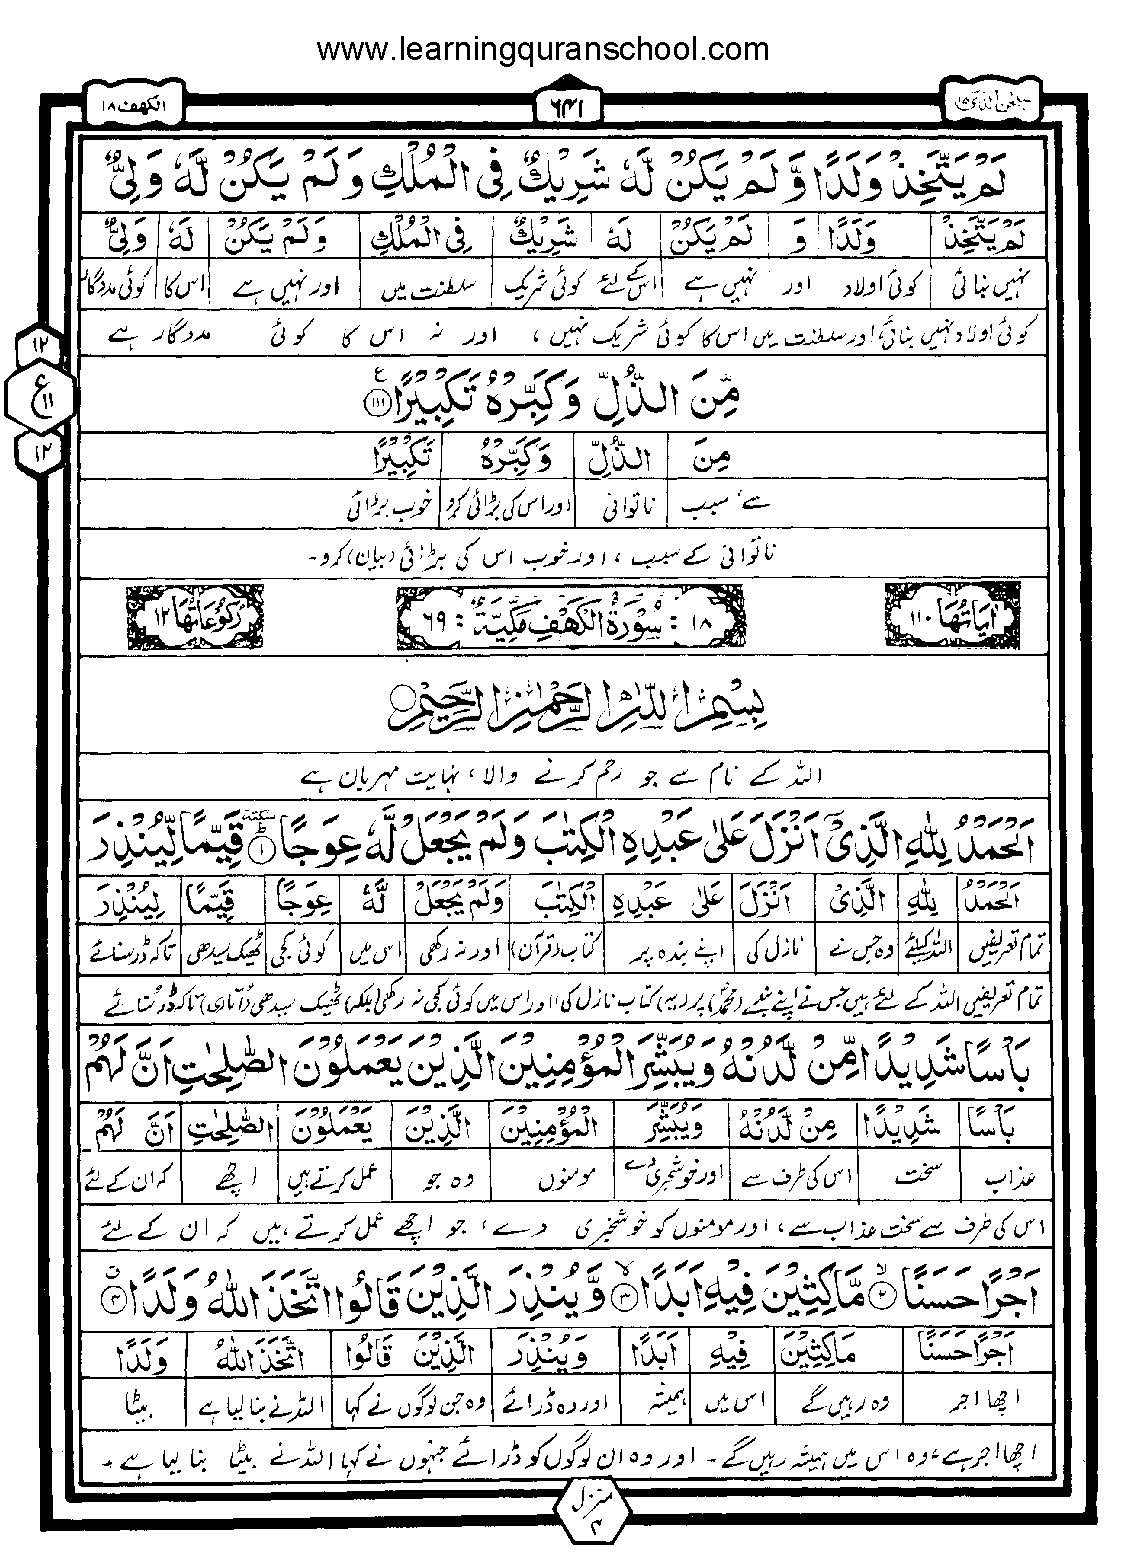 www.learningquranschool.com
سبحٰن الذی ۱۵
۶۴۱
الکھف ۱۸
لَمْ يَتَّخِذْ وَلَدًا وَّ لَمْ يَكُنْ لَّهٗ شَرِيْكٌ فِى الْمُلْكِ وَلَمْ يَكُنْ لَّهٗ وَلِيٌّ
لَمْ يَتَّخِذْ وَلَدًا وَ لَمْ يَكُنْ لَهٗ شَرِيْكٌ فِى الْمُلْكِ وَلَمْ يَكُنْ لَهٗ وَلِيٌّ
نہیں بنائی کوئی اولاد اور نہیں ہے اس کے لئے کوئی شریک سلطنت میں اور نہیں ہے اس کا کوئی مددگار
کوئی اولاد نہیں بنائی، اور سلطنت میں اس کا کوئی شریک نہیں، اور نہ اس کا کوئی مددگار ہے
۱۲
ع
۱۱
۱۲
مِّنَ الذُّلِّ وَكَبِّرْهُ تَكْبِيْرًا ۱۱۱ ع
مِنَ الذُّلِّ وَكَبِّرْهُ تَكْبِيْرًا
سے، سبب ناتوانی اور اس کی بڑائی کرو خوب بڑائی
ناتوانی کے سبب، اور خوب اس کی بڑائی (بیان) کرو۔
اٰيَاتُهَا ۱۱۰
۱۸ : سُوْرَةُ الْكَهْفِ مَكِّيَّةٌ : ۶۹
رُكُوْعَاتُهَا ۱۲
بِسْمِ اللّٰهِ الرَّحْمٰنِ الرَّحِيْمِ
اللہ کے نام سے جو رحم کرنے والا، نہایت مہربان ہے
اَلْحَمْدُ لِلّٰهِ الَّذِىْٓ اَنْزَلَ عَلٰى عَبْدِهِ الْكِتٰبَ وَلَمْ يَجْعَلْ لَّهٗ عِوَجًا ۱ سکتة قَيِّمًا لِّيُنْذِرَ
اَلْحَمْدُ لِلّٰهِ الَّذِىْٓ اَنْزَلَ عَلٰى عَبْدِهِ الْكِتٰبَ وَلَمْ يَجْعَلْ لَّهٗ عِوَجًا قَيِّمًا لِيُنْذِرَ
تمام تعریفیں اللہ کیلئے وہ جس نے نازل کی اپنے بندہ پر کتاب (قرآن) اور نہ رکھی اس میں کوئی کجی ٹھیک سیدھی تاکہ ڈر سنائے
تمام تعریفیں اللہ کے لئے ہیں جس نے اپنے بندے (محمدؐ) پر (یہ) کتاب نازل کی اور اس میں کوئی کجی نہ رکھی (بلکہ) ٹھیک سیدھی (اتاری) تاکہ ڈر سُنائے
بَاْسًا شَدِيْدًا مِّنْ لَّدُنْهُ وَيُبَشِّرَ الْمُؤْمِنِيْنَ الَّذِيْنَ يَعْمَلُوْنَ الصّٰلِحٰتِ اَنَّ لَهُمْ
بَاْسًا شَدِيْدًا مِنْ لَّدُنْهُ وَيُبَشِّرَ الْمُؤْمِنِيْنَ الَّذِيْنَ يَعْمَلُوْنَ الصّٰلِحٰتِ اَنَّ لَهُمْ
عذاب سخت اس کی طرف سے اور خوشخبری دے مومنوں وہ جو عمل کرتے ہیں اچھے کہ ان کے لئے
اس کی طرف سے سخت عذاب سے، اور مومنوں کو خوشخبری دے، جو اچھے عمل کرتے ہیں کہ ان کے لئے
اَجْرًا حَسَنًا ۲ مَّاكِثِيْنَ فِيْهِ اَبَدًا ۳ وَّيُنْذِرَ الَّذِيْنَ قَالُوا اتَّخَذَ اللّٰهُ وَلَدًا ۴
اَجْرًا حَسَنًا مَاكِثِيْنَ فِيْهِ اَبَدًا وَيُنْذِرَ الَّذِيْنَ قَالُوا اتَّخَذَ اللّٰهُ وَلَدًا
اچھا اجر وہ رہیں گے اس میں ہمیشہ اور وہ ڈرائے وہ جن لوگوں نے کہا اللہ نے بنا لیا ہے بیٹا
اچھا اجر ہے، وہ اس میں ہمیشہ رہیں گے۔ اور وہ ان لوگوں کو ڈرائے جنہوں نے کہا اللہ نے بیٹا بنا لیا ہے۔
منزل
۴